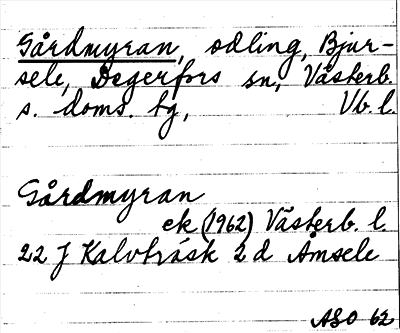 Gårdmyran, odling, Bjur-
sele, Degerfors sn, Västerb.
s. doms. tg, Vb. l.
Gårdmyran
ek (1962) Västerb. l.
22 J Kalvträsk 2 d Åmsele
ASO 62